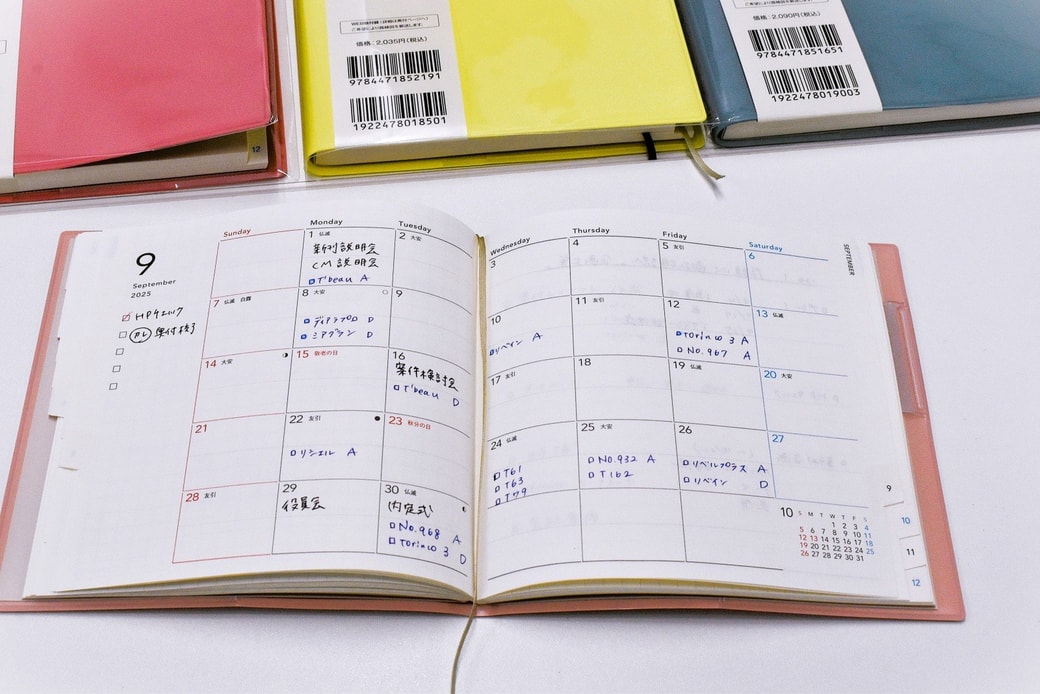 WEB保存版(詳細は奥付ページへ)
ご希望により複写証を郵送します。
価格:2,035円(税込)
9784471852191
1922478018501
ご希望により複写証を郵送します。
価格:2,090円(税込)
9784471851651
1922478019003
12
9
September
2025
HPチェック
PL 奥付校了
Sunday
Monday
Tuesday
1 仏滅
新刊説明会
CM説明会
T'beau A
2 大安
7 仏滅 白露
8 大安
ディアンプロ D
ミアグラン D
9
14 大安
15 敬老の日
16
案件検討会
T'beau D
21
22 友引
リシェル A
23 秋分の日
28 友引
29
役員会
30 仏滅
内定式
No.968 A
Torinco 3 D
Wednesday
Thursday
Friday
Saturday
SEPTEMBER
3
4
5 友引
6
10
リベイン A
11 友引
12
Torinco 3 A
No.967 A
13 仏滅
17 友引
18
19 仏滅
20 大安
24 仏滅
T61
T63
T79
25 大安
No.932 A
T162
26
リベルプラス A
リベイン D
27
10
S M T W T F S
1 2 3 4
5 6 7 8 9 10 11
12 13 14 15 16 17 18
19 20 21 22 23 24 25
26 27 28 29 30 31
9
10
11
12